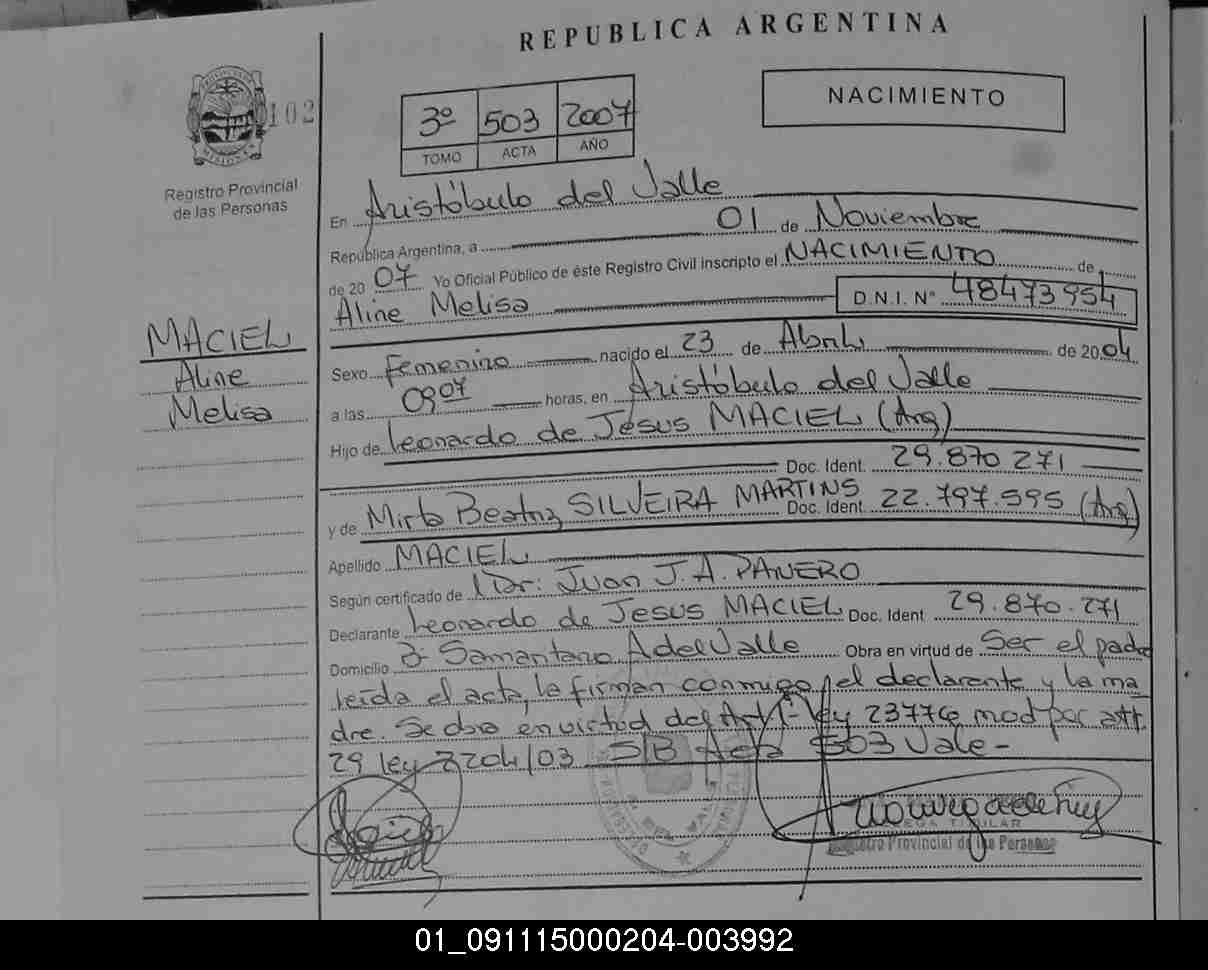 REPUBLICA ARGENTINA
PROVINCIA DE
MISIONES
102
Registro Provincial
de las Personas
3º 503 2007
TOMO ACTA AÑO
NACIMIENTO
En Aristóbulo del Valle
República Argentina, a 01 de Noviembre
de 20 07 Yo Oficial Público de éste Registro Civil inscripto el NACIMIENTO de
Aline Melisa D.N.I. Nº 48473954
MACIEL
Aline
Melisa
Sexo Femenino nacido el 23 de Abril de 2004
a las 0907 horas, en Aristóbulo del Valle
Hijo de Leonardo de Jesus MACIEL (Arg)
Doc. Ident. 29.870 271
y de Mirta Beatriz SILVEIRA MARTINS Doc. Ident. 22.797.595 (Arg)
Apellido MACIEL
Según certificado de Dr: Juan J. A. PANERO
Declarante Leonardo de Jesus MACIEL Doc. Ident 29.870.271
Domicilio Samantano A del Valle Obra en virtud de Ser el padre
leída el acta, la firman conmigo, el declarante y la ma
dre. Se obra en virtud del Art 1- ley 23776 mod por att.
29 ley 2204/03 S/B Acta 503 Vale-
TITULAR
Registro Provincial de las Personas
01_091115000204-003992